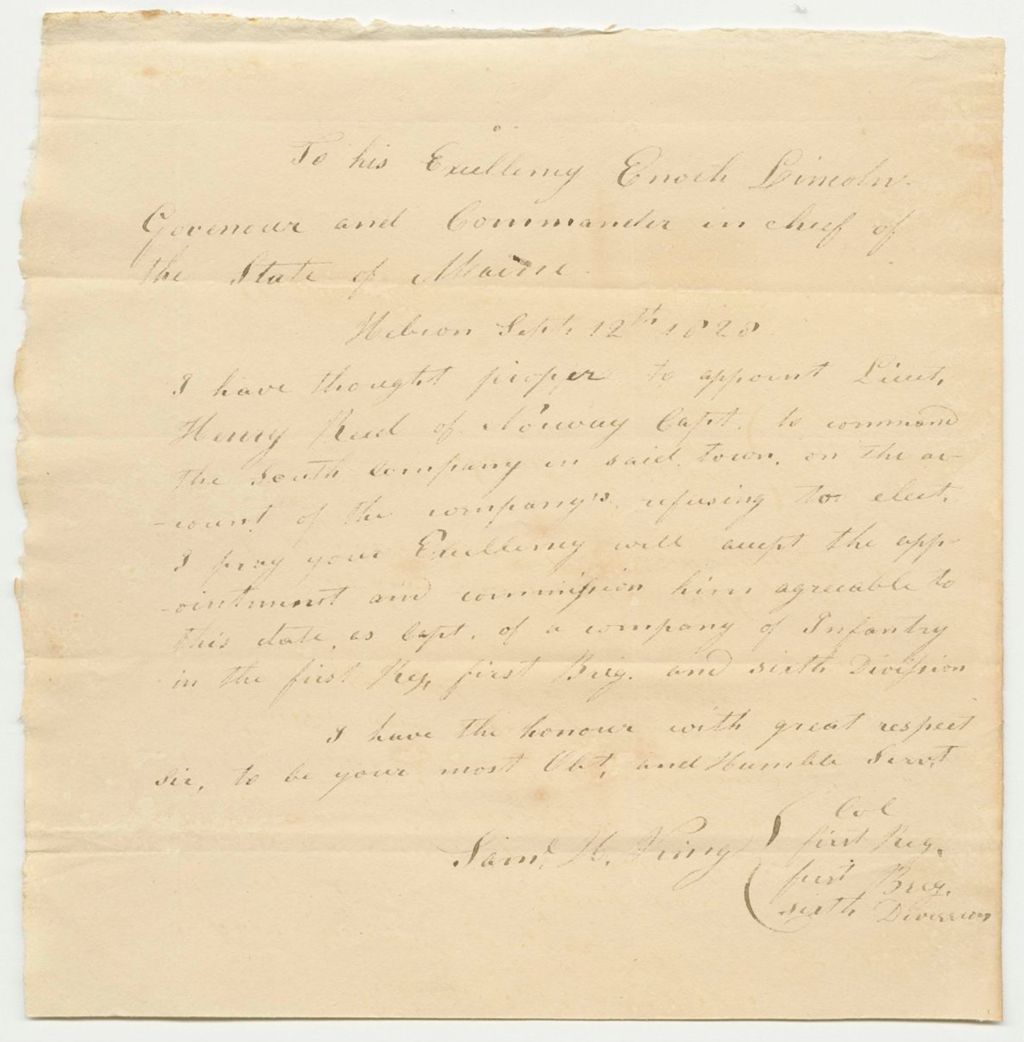 To his Excellency Enoch Lincoln.
Goveneur and Commander in chief of
the State of Maine.
Hebron Sept. 12th 1828
I have thought proper to appoint Lieut.
Henry Reed of Norway Capt. to command
the South company in said town, on the ac-
-count of the company's refusing to elect.
I pray your Excellency will accept the app-
-ointment and commission him agreeable to
this date, as Capt. of a company of Infantry
in the first Reg. first Brig. and sixth Division
I have the honour with great respect
sir, to be your most Obt. and Humble Servt
Saml. H. King
Col
first Reg.
first Brig.
sixth Division